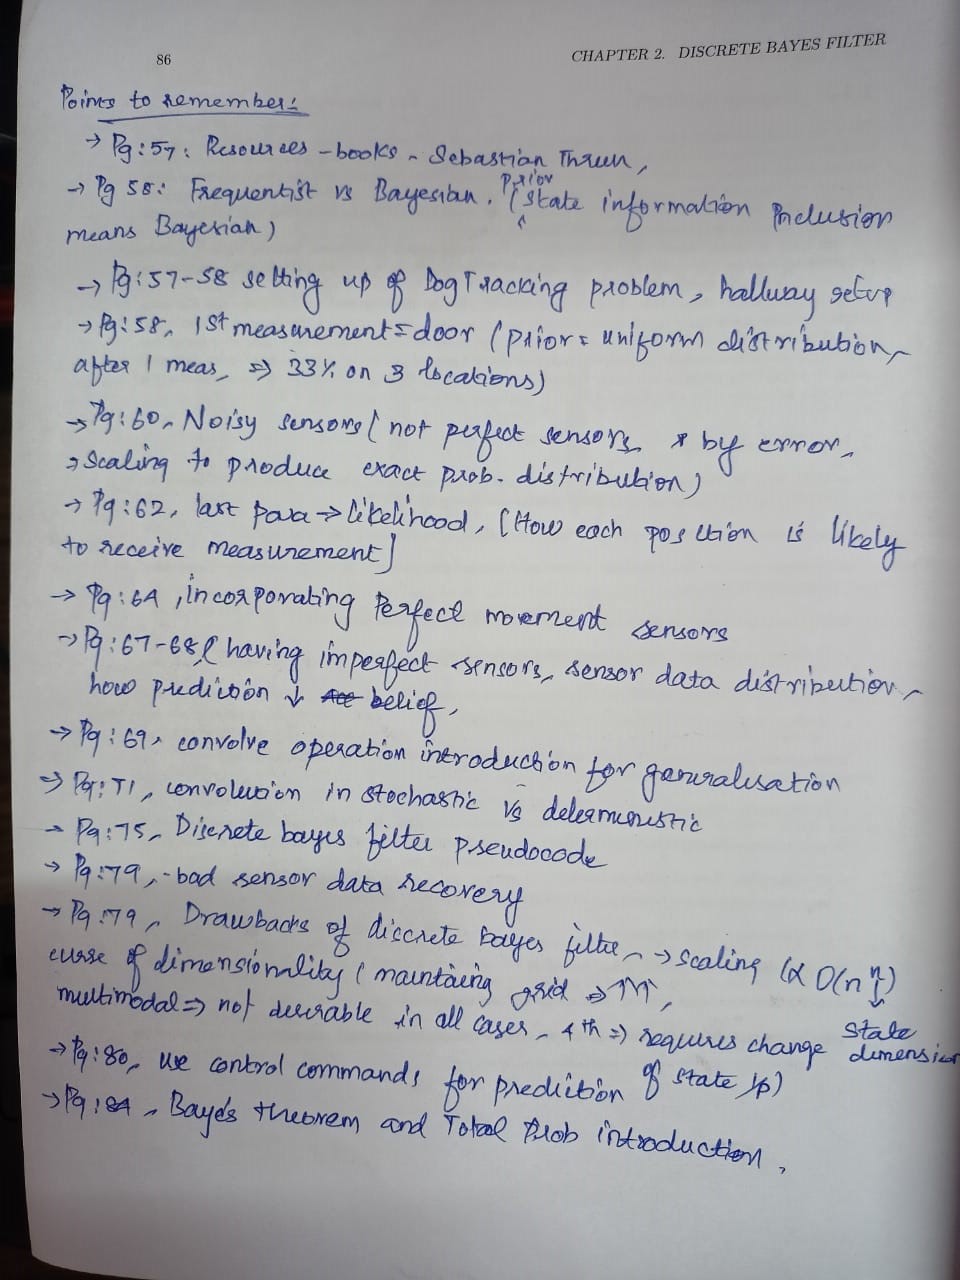 86
CHAPTER 2. DISCRETE BAYES FILTER
Points to remember:
→ Pg:57: Resources - books - Sebastian Thrun,
→ Pg 58: Frequentist vs Bayesian. (prior state information inclusion
means Bayesian)
→ Pg:57-58 setting up of Dog Tracking problem, hallway setup
→ Pg:58, 1st measurement = door (prior = uniform distribution,
after 1 meas, ⇒ 33% on 3 locations)
→ Pg:60, Noisy sensors (not perfect sensors, * by error,
→ scaling to produce exact prob. distribution)
→ Pg:62, last para → likelihood, (How each position is likely
to receive measurement)
→ Pg:64, incorporating Perfect movement sensors
→ Pg:67-68, (having imperfect sensors, sensor data distribution,
how prediction ↓ belief,
→ Pg:69, convolve operation introduction for generalisation
→ Pg:71, convolution in stochastic vs deterministic
→ Pg:75, Discrete bayes filter pseudocode
→ Pg:79, - bad sensor data recovery
→ Pg:79, Drawbacks of discrete bayes filter, → scaling (∝ O(n^n)
curse of dimensionality (maintaing grid ⇒ ↑↑↑,
↓
state
dimension
multimodal ⇒ not desirable in all cases, 4th ⇒ requires change
of state i/p)
→ Pg:80, use control commands for prediction
→ Pg:84, Baye's theorem and Total Prob introduction.